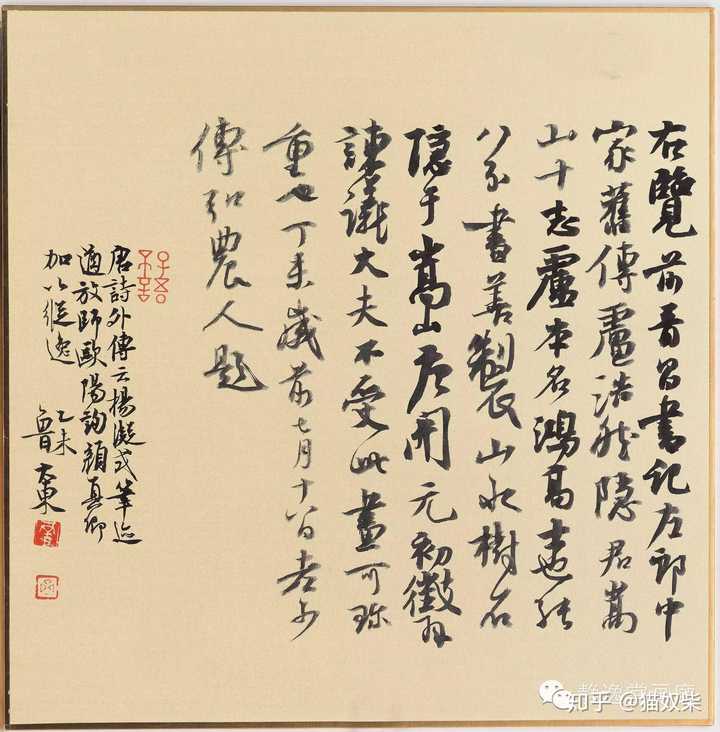 右覽前晉昌書記左郎中
家舊傳盧浩然隱君嵩
山十志盧本名鴻高士也能
八分書善製山水樹石
隱于嵩山唐開元初徵拜
諫議大夫不受此畫可珍
重也丁未歲前七月十八日老少
傅弘農人題
唐詩外傳云楊凝式筆迹
遒放師歐陽詢顏真卿
加以縱逸
乙未
魯東
知乎 @猫奴柴